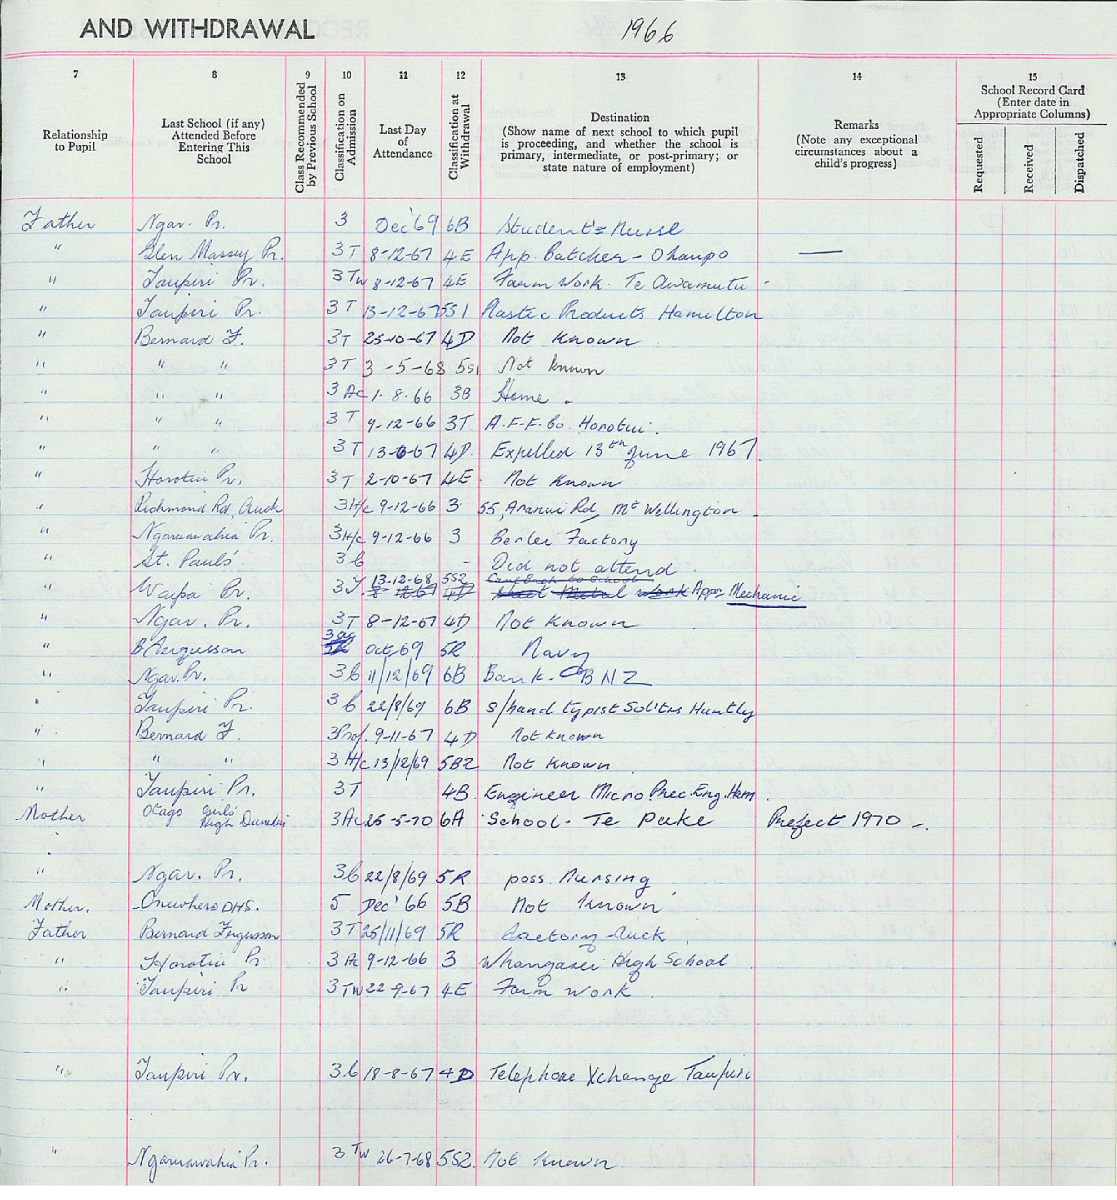 AND WITHDRAWAL 1966
7 8 9 10 11 12 13 14 15
Relationship to Pupil
Last School (if any) Attended Before Entering This School
Class Recommended by Previous School
Classification on Admission
Last Day of Attendance
Classification at Withdrawal
Destination (Show name of next school to which pupil is proceeding, and whether the school is primary, intermediate, or post-primary; or state nature of employment)
Remarks (Note any exceptional circumstances about a child's progress)
School Record Card (Enter date in Appropriate Columns)
Requested Received Dispatched
Father Ngar. Pr. 3 Dec '69 6B Student Nurse
" Glen Massey Pr. 3T 8-12-67 4E App. Butcher - Ohaupo —
" Taupiri Pr. 3Tw 8-12-67 4E Farm Work. Te Awamutu
" Taupiri Pr. 3T 13-12-67 5S1 Plastic Products Hamilton
" Bernard F. 3T 25-10-67 4D Not Known
" " " 3T 3-5-68 5S1 Not Known
" " " 3Ac 1-8-66 3B Home.
" " " 3T 9-12-66 3T A.F.F. Co. Horotiu.
" " " 3T 13-6-67 4D. Expelled 13th June 1967.
" Horotiu Pr. 3T 2-10-67 4E. Not Known
" Richmond Rd, Auck 3H/c 9-12-66 3 55, Rd, Mt Wellington
" Ngaruawahia Pr. 3H/c 9-12-66 3 Berlei Factory
" St. Pauls' 3b - Did not attend
" Waipa Pr. 3Y 13-12-68 5S2 Came Back to School Sheet Metal Work Appr. Mechanic
" Ngar. Pr. 3T 8-12-67 4D Not Known
" B Fergusson 3ag Oct 69 5R Navy
" Ngar. Pr. 3b 11/12/69 6B Bank - BNZ
" Taupiri Pr. 3b 22/8/69 6B S/hand typist Soltrs Huntly
" Bernard F. 3Prof. 9-11-67 4D Not known
" " " 3H/c 13/12/69 5B2 Not Known
" Taupiri Pr. 3T 4B Engineer Micro Prec. Eng. Ham.
Mother Otago Girls' High Dunedin 3Ac 25-5-70 6A School - Te Puke Prefect 1970 -.
" Ngar. Pr. 3b 22/8/69 5R poss. Nursing
Mother. Onewhero DHS. 5 Dec '66 5B Not known
Father Bernard Fergusson 3T 25/11/69 5R factory - Auck.
" Horotiu Pr 3Ac 9-12-66 3 Whangarei High School
" Taupiri Pr 3Tw 22-9-67 4E Farm Work.
" Taupiri Pr. 3b 18-8-67 4D Telephone Xchange Taupiri
" Ngaruawahia Pr. 3Tw 26-7-68 5S2. Not Known